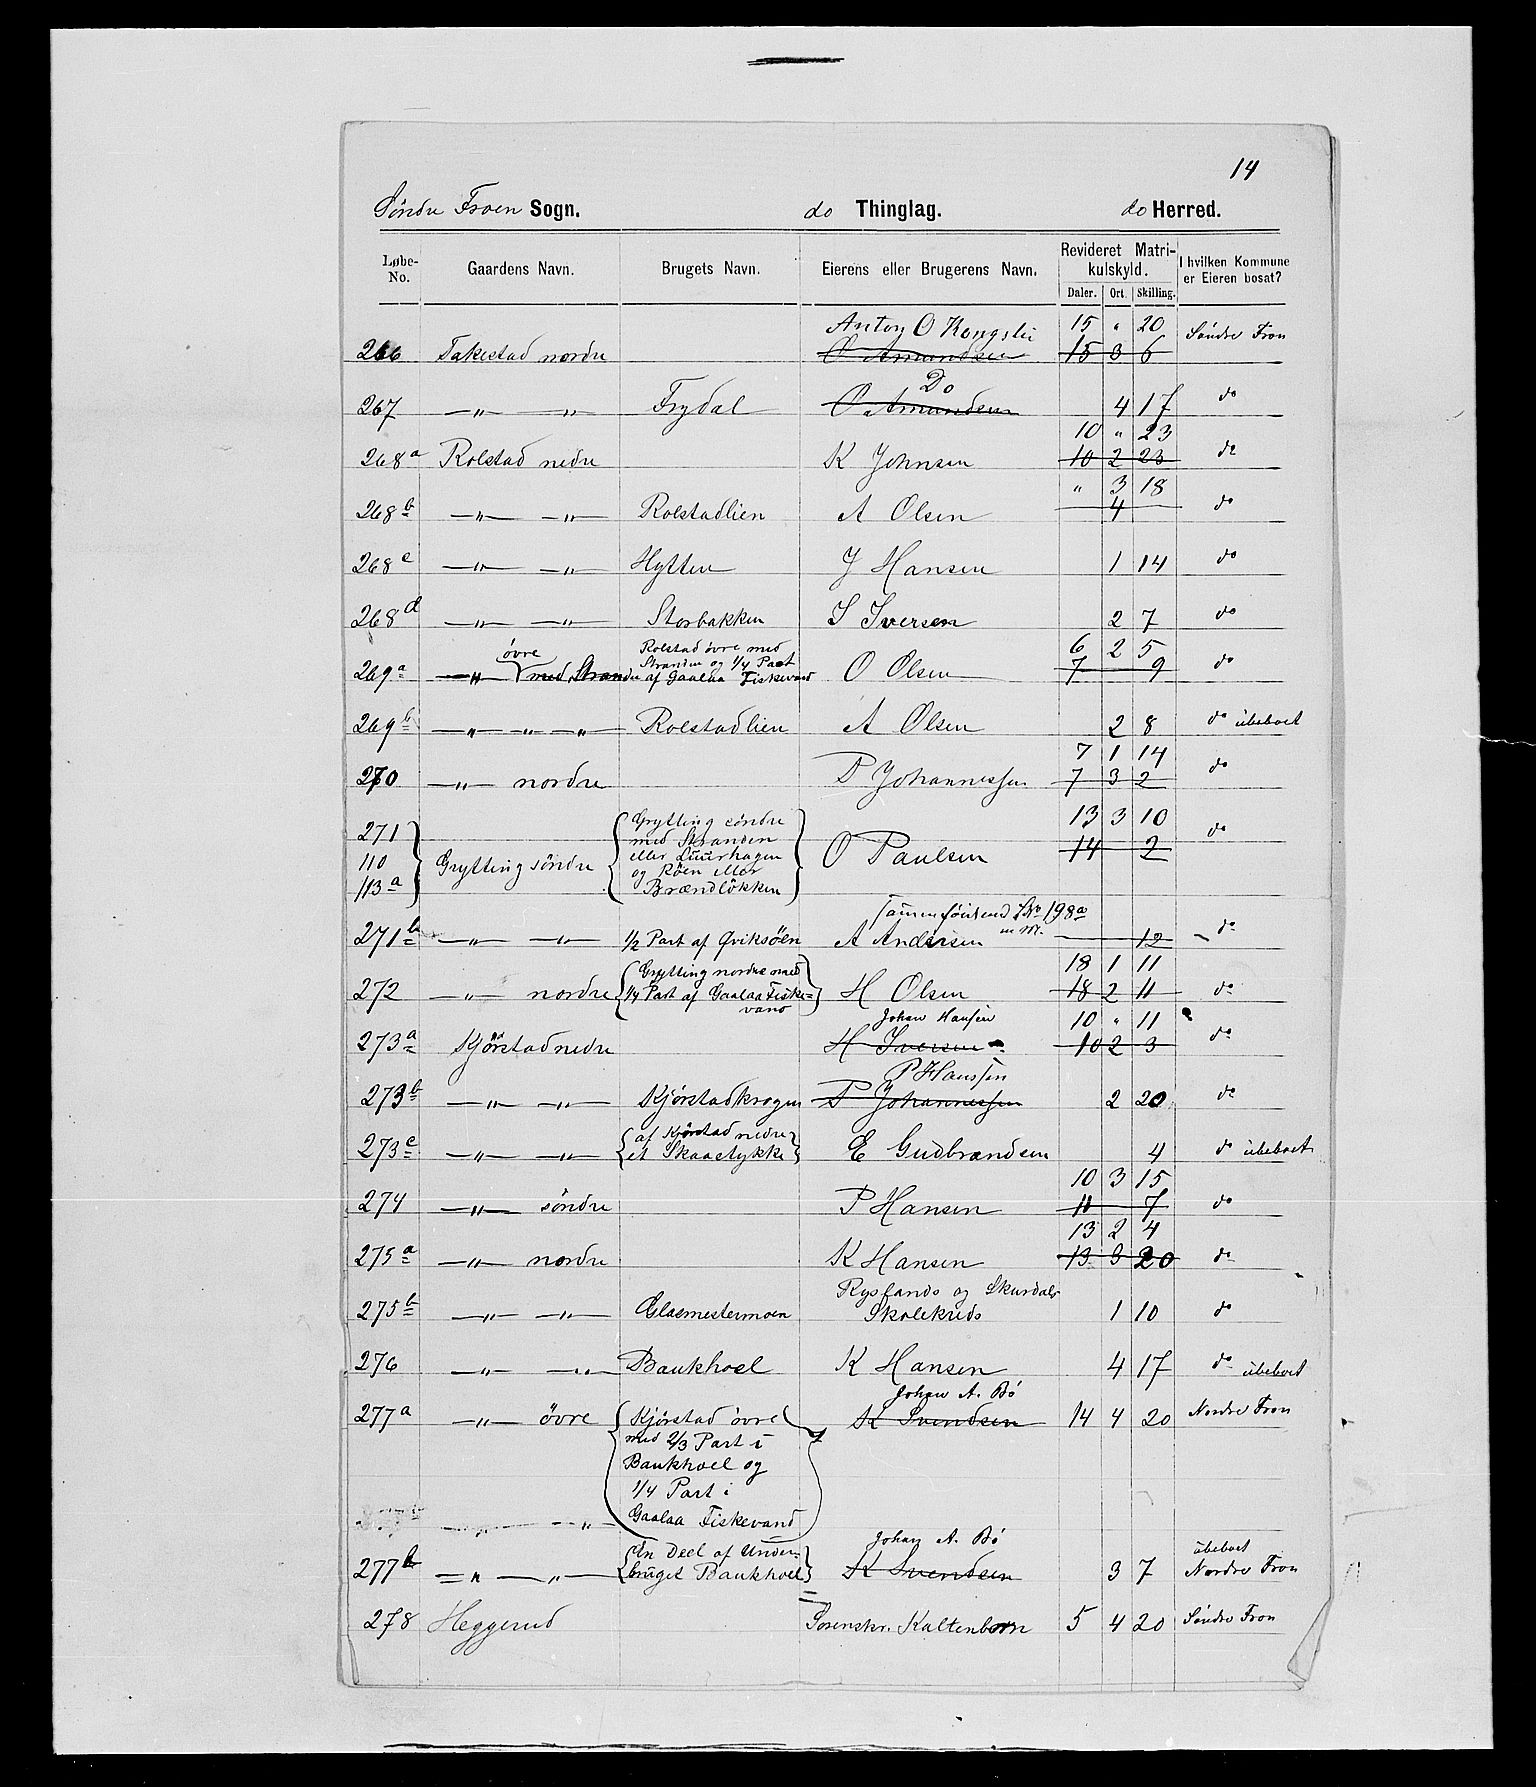 14
Söndre Froen Sogn. do Thinglag. do Herred.
Løbe-No. Gaardens Navn. Brugets Navn. Eierens eller Brugerens Navn. Revideret Matrikulskyld. I hvilken Kommune er Eieren bosat?
Daler. Ort. Skilling.
Anton O Kongsli 15 " 20 Söndre Fron
266 Takestad nordre O Amundsen 15 3 6
Do
267 —"— —"— Frydal O Amundsen 4 17 do
10 " 23
268a Rolstad nedre K Johnsen 10 2 23 do
" 3 18
268b —"— —"— Rolstadlien A Olsen 4 do
268c —"— —"— Hytten J Hansen 1 14 do
268d —"— —"— Storbakken I Iversen 2 7 do
övre Rolstad övre med 6 2 5
Stranden og 1/4 Part
269a —"— med Stranden af Gaalaa Fiskevand O Olsen 7 9 do
269b —"— —"— —"— Rolstadlien A Olsen 2 8 do übeboet
7 1 14
270 —"— nordre P Johannessen 7 3 2 do
271 Grytting söndre 13 3 10
110 med Stranden
113a Grytting söndre eller Luurhagen O Paulsen 14 2 do
og Röen eller
Brændlökken
Sammenföiet med LNo 198a
271b —"— —"— 1/2 Part af Qviksöen A Andersen 12 do
Grytting nordre med 18 1 11
272 —"— nordre 1/4 Part af Gaalaa Fiske= H Olsen 18 2 11 do
vand
Johan Hansen 10 " 11
273a Kjörstad nedre H Iversen 10 2 3 do
P Hanssen
273b —"— —"— Kjörstadkrogen P Johannessen 2 20 do
af Kjörstad nedre
273c —"— —"— et Skaastykke E Gudbrandsen 4 do übeboet
10 3 15
274 —"— söndre P Hansen 11 7 do
13 2 4
275a —"— nordre K Hansen 13 3 20 do
Ryslands og Skurdals
275b —"— —"— Glasmestermoen Skolekreds 1 10 do
276 —"— —"— Baukhoel K Hansen 4 17 do übeboet
Johan A. Bö
277a —"— övre Kjörstad övre K Svendsen 14 4 20 Nordre Fron
med 2/3 Part i
Baukhoel og
1/4 Part i
—"— —"— Gaalaa Fiskevand
En Deel af Under= Johan A. Bö übeboet
277b —"— —"— bruget Baukhoel K Svendsen 3 7 Nordre Fron
278 Heggerud Sorenskr. Kaltenborn 5 4 20 Söndre Fron